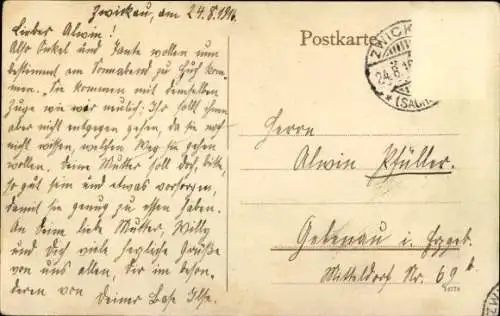 Zwickau, am 24.8.1910.
Lieber Alwin!
Also Onkel und Tante wollen nun
bestimmt am Sonnabend zu Euch kom-
men. Sie kommen mit demselben
Zuge wie wir neulich. Ihr sollt ihnen
aber nicht entgegen gehen, da sie noch
nicht wissen, welchen Weg sie gehen
wollen. Deine Mutter soll doch, bitte,
so gut sein und etwas vorsorgen,
damit sie genug zu essen haben.
An Deine liebe Mutter, Willy
und Dich viele herzliche Grüße
von uns allen, Dir im beson-
deren von Deiner Base Ilse.
Postkarte
ZWICK
24.8.10
(SACH
Herrn
Alwin Pfüller.
Gelenau i. Erzgeb.
Mitteldorf Nr. 69 b